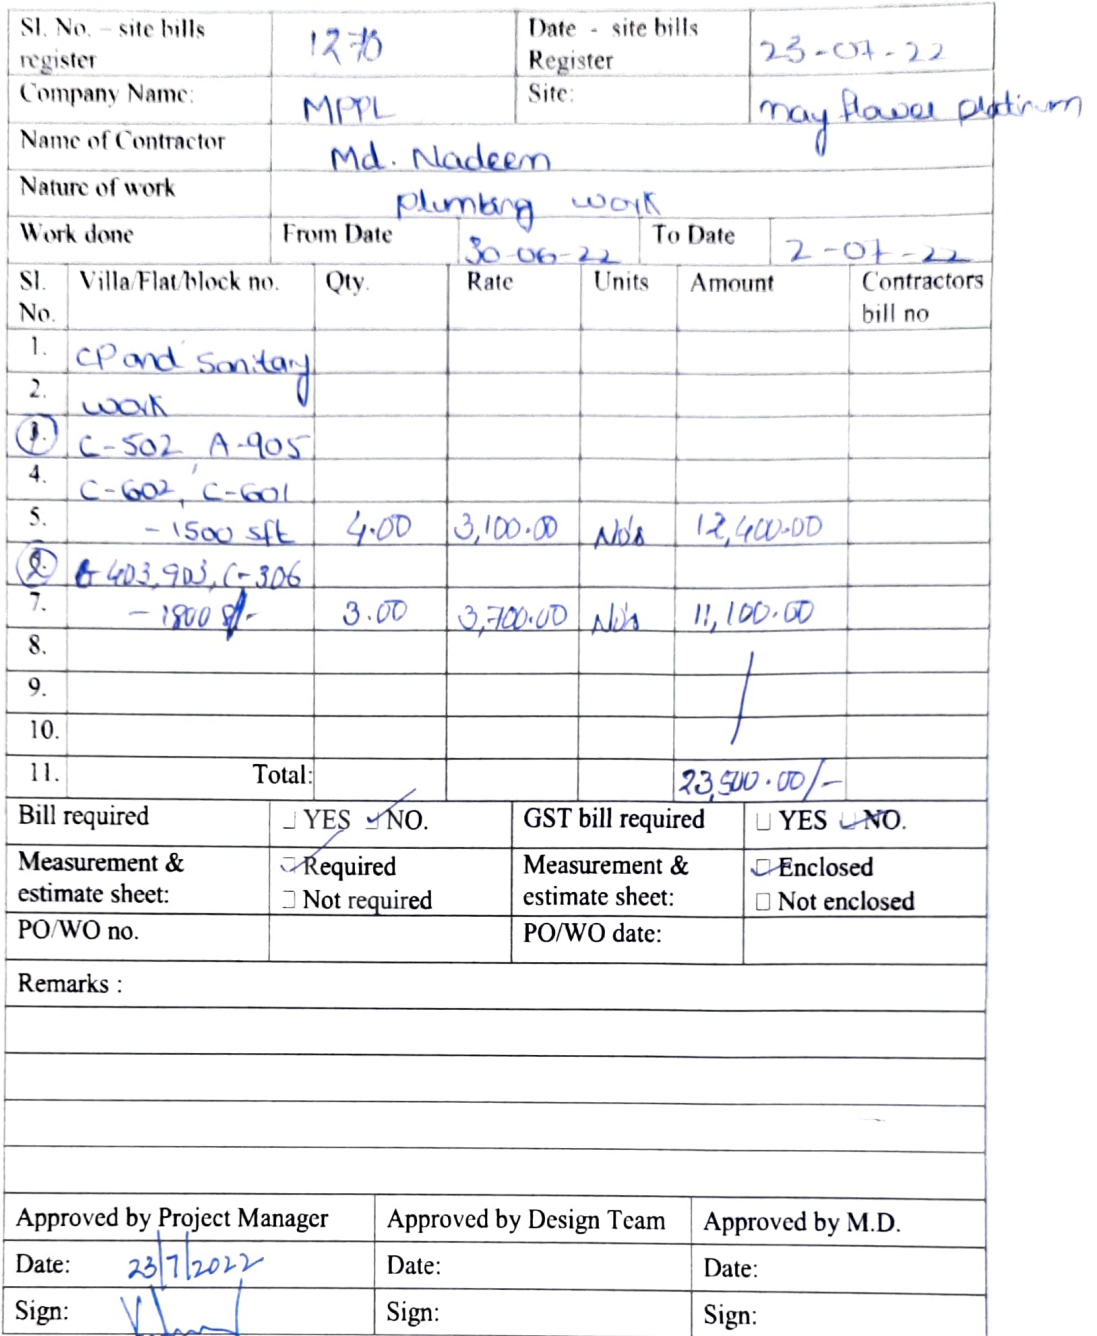 Sl. No. – site bills register 1270 Date - site bills Register 23-07-22
Company Name: MPPL Site: may flower platinum
Name of Contractor Md. Nadeem
Nature of work plumbing work
Work done From Date 30-06-22 To Date 2-07-22
Sl. No. Villa/Flat/block no. Qty. Rate Units Amount Contractors bill no
1. CP and Sanitary
2. work
1. C-502, A-905
4. C-602, C-601
5. - 1500 sft 4.00 3,100.00 No's 12,400.00
2. 403, 903, C-306
7. - 1800 sft 3.00 3,700.00 No's 11,100.00
8.
9.
10.
11. Total: 23,500.00/-
Bill required YES NO. GST bill required YES NO.
Measurement & estimate sheet: Required Not required Measurement & estimate sheet: Enclosed Not enclosed
PO/WO no. PO/WO date:
Remarks :
Approved by Project Manager Approved by Design Team Approved by M.D.
Date: 23/7/2022 Date: Date:
Sign: Sign: Sign: